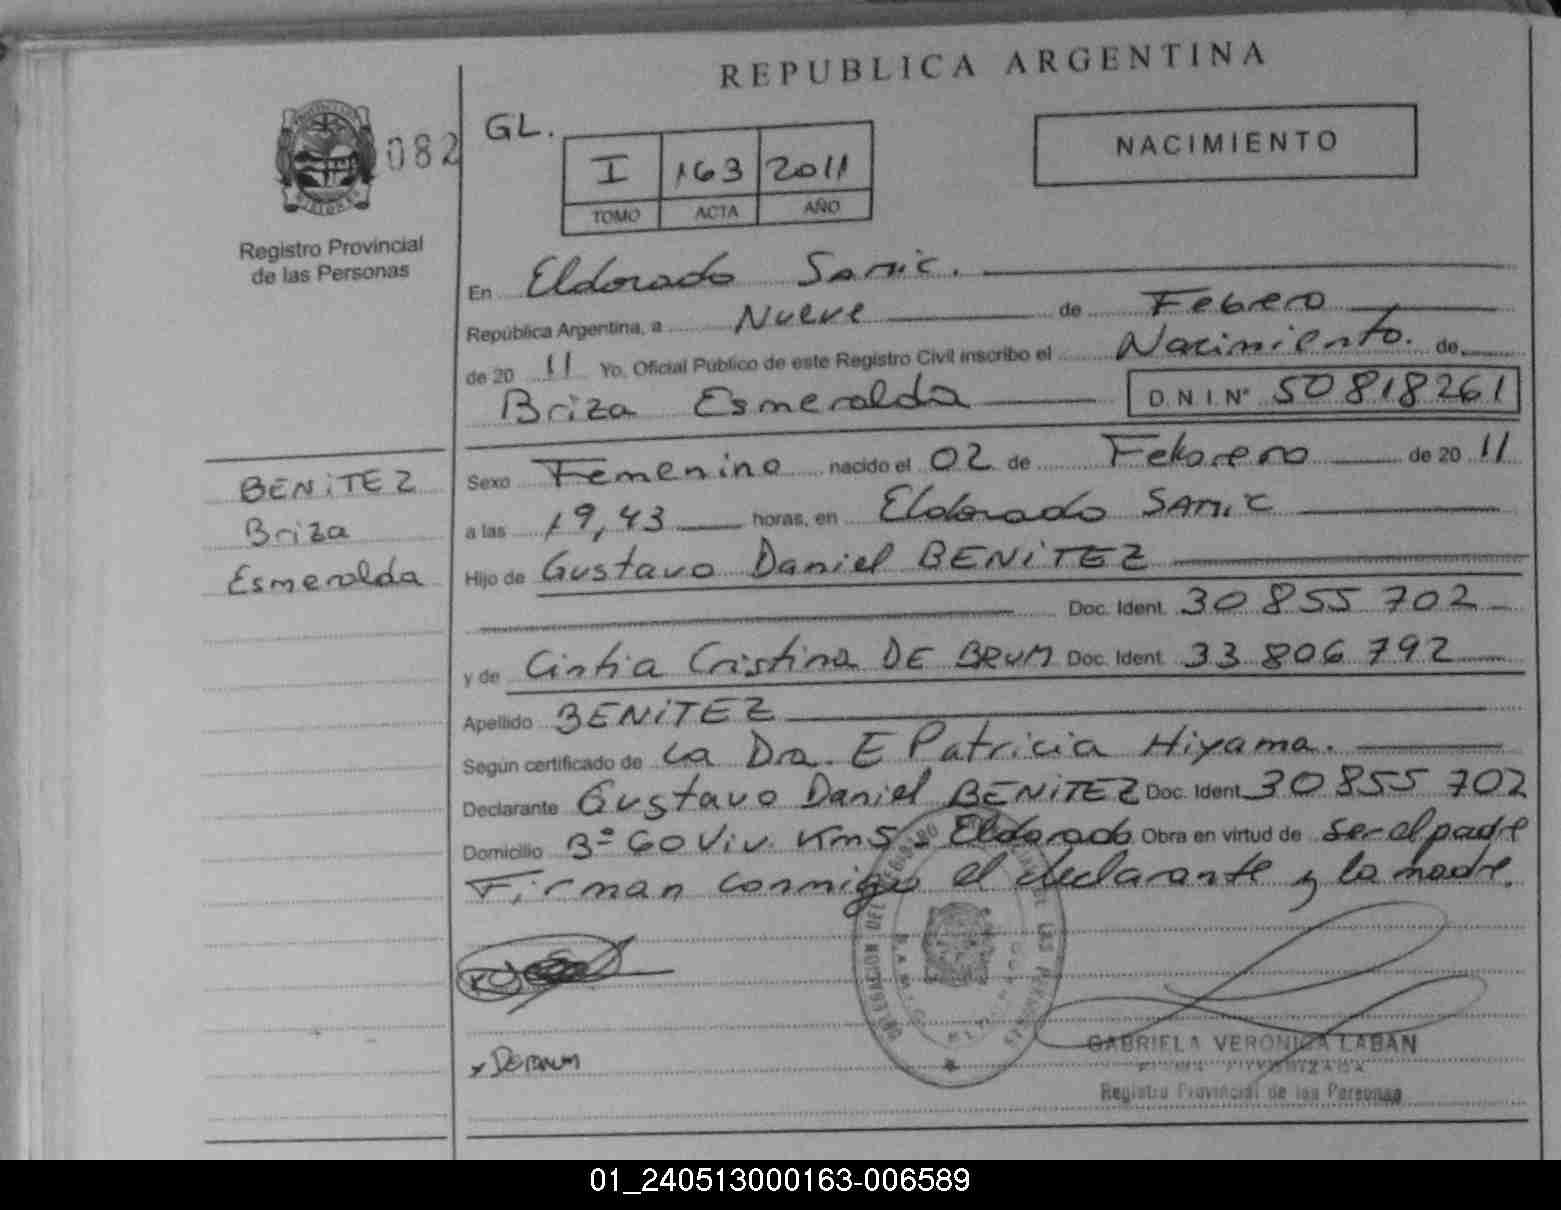 REPUBLICA ARGENTINA
082
GL.
NACIMIENTO
I 163 2011
TOMO ACTA AÑO
Registro Provincial
de las Personas
En Eldorado Samic.
República Argentina, a Nueve de Febrero
de 20 11 Yo, Oficial Público de este Registro Civil inscribo el Nacimiento. de
Briza Esmeralda D.N.I.Nº 50818261
BENiTEZ
Briza
Esmeralda
Sexo Femenino nacido el 02 de Febrero de 20 11
a las 19,43 horas, en Eldorado SAMiC
Hijo de Gustavo Daniel BENiTEZ
Doc. Ident. 30 855 702
y de Cintia Cristina DE BRUM Doc. Ident. 33 806 792
Apellido BENiTEZ
Según certificado de La Dra. E Patricia Hiyama.
Declarante Gustavo Daniel BENiTEZ Doc. Ident. 30 855 702
Domicilio Bº 60 Viv. Km5 Eldorado Obra en virtud de ser el padre
Firman conmigo el declarante y la madre.
DELEGACION DEL REGISTRO DE LAS PERSONAS
x DEBRUM
GABRIELA VERONICA LABAN
Registro Provincial de las Personas
01_240513000163-006589